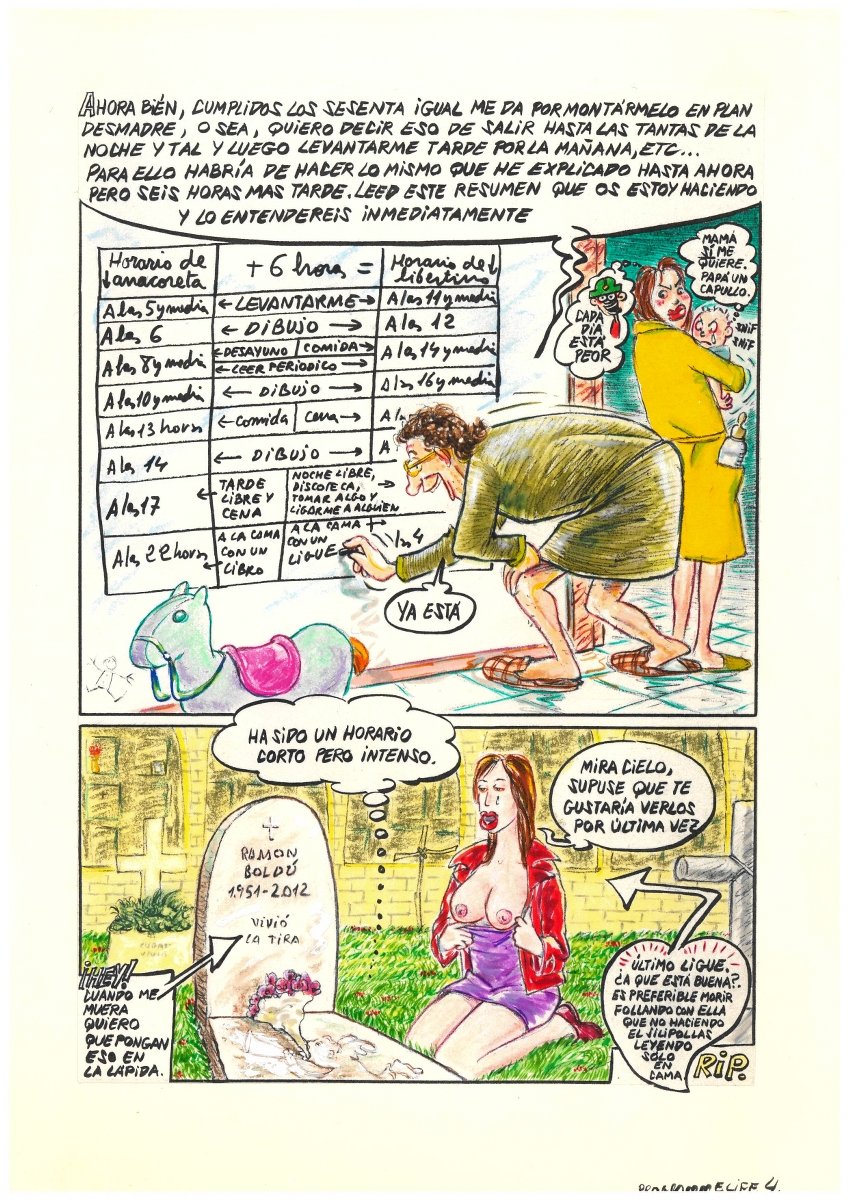 AHORA BIÉN, CUMPLIDOS LOS SESENTA IGUAL ME DA POR MONTÁRMELO EN PLAN
DESMADRE, O SEA, QUIERO DECIR ESO DE SALIR HASTA LAS TANTAS DE LA
NOCHE Y TAL Y LUEGO LEVANTARME TARDE POR LA MAÑANA, ETC...
PARA ELLO HABRÍA DE HACER LO MISMO QUE HE EXPLICADO HASTA AHORA
PERO SEIS HORAS MAS TARDE. LEED ESTE RESUMEN QUE OS ESTOY HACIENDO
Y LO ENTENDEREIS INMEDIATAMENTE
Horario de
anacoreta
+ 6 horas =
Horario del
libertino
A las 5 y media
← LEVANTARME →
A las 11 y media
A las 6
← DIBUJO →
A las 12
A las 8 y media
← DESAYUNO | COMIDA →
← LEER PERIODICO →
A las 14 y media
A las 10 y media
← DIBUJO →
A las 16 y media
A las 13 horas
← Comida | Cena →
A las 14
← DIBUJO →
A
A las 17
← TARDE
LIBRE Y
CENA
NOCHE LIBRE,
DISCOTECA, →
TOMAR ALGO Y
LIGARME A ALGUIEN
A las 22 horas
A LA CAMA
CON UN
← LIBRO
A LA CAMA →
CON UN
LIGUE
las 4
CADA
DÍA
ESTÁ
PEOR
MAMÁ
SÍ ME
QUIERE.
PAPÁ UN
CAPULLO.
SNIF
SNIF
YA ESTÁ
HA SIDO UN HORARIO
CORTO PERO INTENSO.
MIRA CIELO,
SUPUSE QUE TE
GUSTARÍA VERLOS
POR ÚLTIMA VEZ
RAMON
BOLDÚ
1.951-2.012
VIVIÓ
LA TIRA
¡HEY!
CUANDO ME
MUERA
QUIERO
QUE PONGAN
ESO EN
LA LÁPIDA.
ÚLTIMO LIGUE.
¿A QUE ESTÁ BUENA?.
ES PREFERIBLE MORIR
FOLLANDO CON ELLA
QUE NO HACIENDO
EL SILIPOLLAS
LEYENDO
SOLO
EN
CAMA.
RIP.
4.